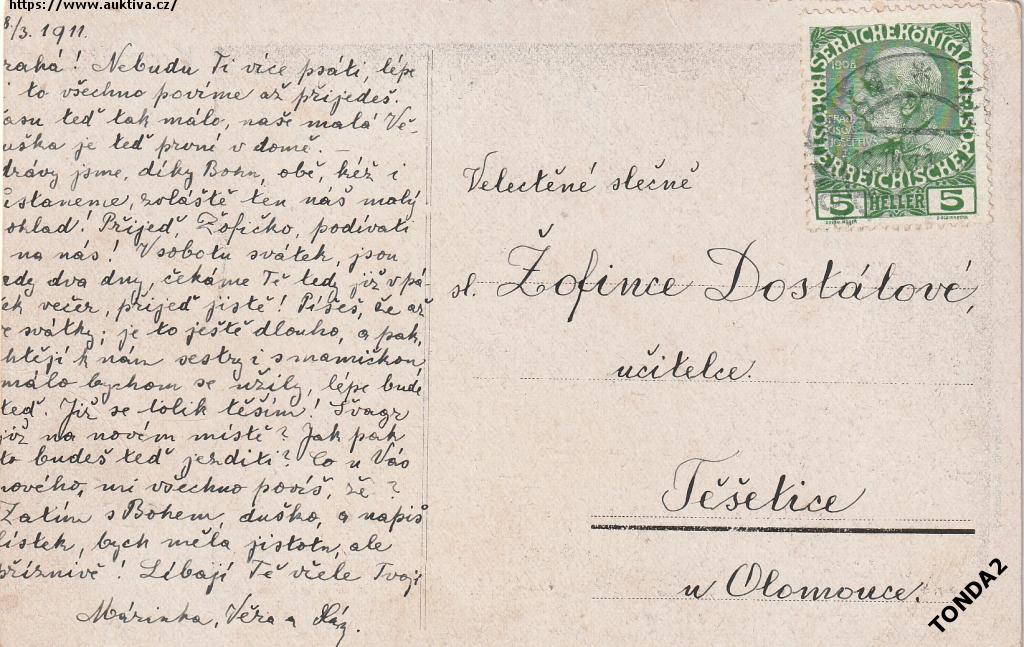 https://www.auktiva.cz/
8./3. 1911.
rahá! Nebudu Ti více psáti, lépe
to všechno povíme až přijedeš.
asu teď tak málo, naše malá Vě-
uška je teď první v domě. —
drávy jsme, díky Bohu, obě, kéž i
ůstaneme, zvláště ten náš malý
ohlad! Přijeď, Žofičko, podívati
na nás! V sobotu svátek, jsou
edy dva dny, čekáme Tě tedy již v pá-
ek večer, přijeď jistě! Píšeš, že až
e svátky; je to ještě dlouho, a pak,
htějí k nám sestry i s maminkou,
málo bychom se užily, lépe bude
teď. Již se tolik těším! Švagr
již na novém místě? Jak pak
to budeš teď jezditi? Co u Vás
nového, mi všechno povíš, že?
Zatím s Bohem, duško, a napiš
lístek, bych měla jistotu, ale
příznivě! Líbají Tě vřele Tvoji
Mařinka, Věra a
Velectěné slečně
sl. Žofince Dostálové,
učitelce.
Těšetice
u Olomouce.
KAISERLICHE KÖNIGLICHE
ÖSTERREICHISCHE POST
1908
FRANCISCVS JOSEPH I
5 HELLER 5
TONDA2